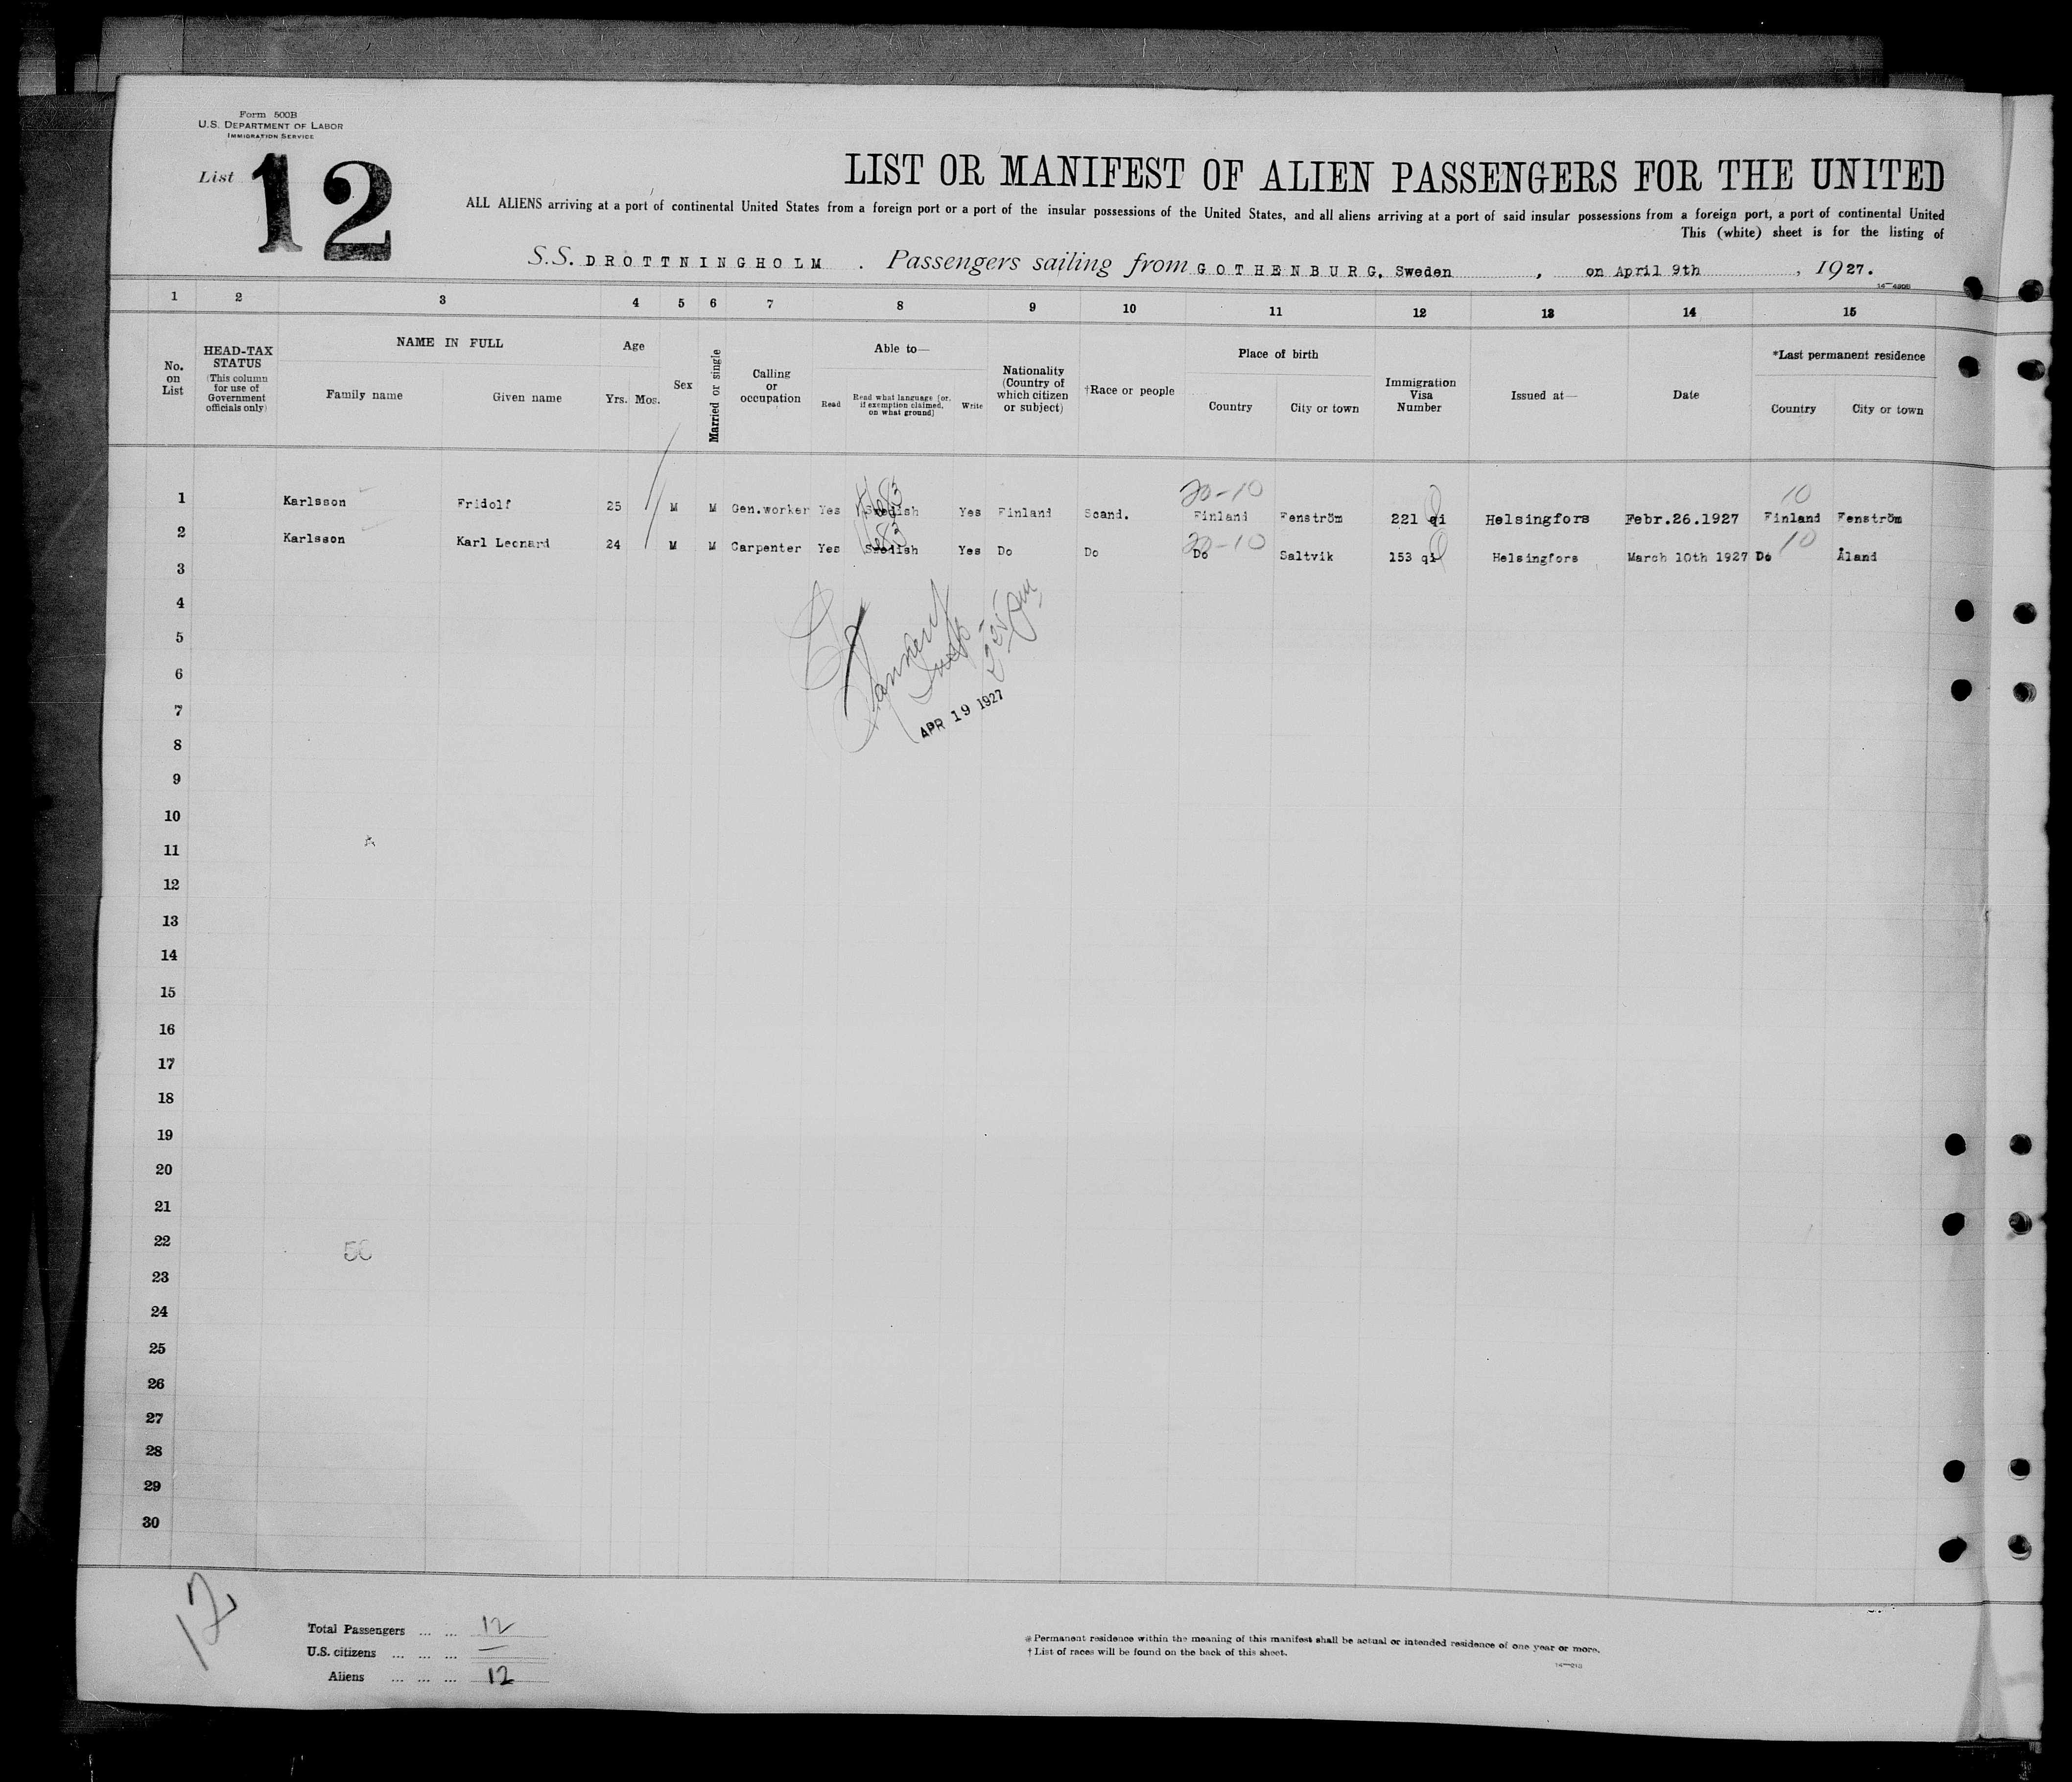 Form 500B
U.S. DEPARTMENT OF LABOR
IMMIGRATION SERVICE
List 12
LIST OR MANIFEST OF ALIEN PASSENGERS FOR THE UNITED
ALL ALIENS arriving at a port of continental United States from a foreign port or a port of the insular possessions of the United States, and all aliens arriving at a port of said insular possessions from a foreign port, a port of continental United
This (white) sheet is for the listing of
S.S. DROTTNINGHOLM . Passengers sailing from GOTHENBURG, Sweden , on April 9th , 1927.
1 2 3 4 5 6 7 8 9 10 11 12 13 14 15
No. on List
HEAD-TAX STATUS (This column for use of Government officials only)
NAME IN FULL
Family name Given name
Age
Yrs. Mos.
Sex
Married or single
Calling or occupation
Able to—
Read
Read what language (or, if exemption claimed, on what ground)
Write
Nationality (Country of which citizen or subject)
†Race or people
Place of birth
Country City or town
Immigration Visa Number
Issued at—
Date
*Last permanent residence
Country City or town
20-10 10
1 Karlsson Fridolf 25 M M Gen.worker Yes Swedish Yes Finland Scand. Finland Fenström 221 qi Helsingfors Febr.26.1927 Finland Fenström
20-10 10
2 Karlsson Karl Leonard 24 M M Carpenter Yes Swedish Yes Do Do Do Saltvik 153 qi Helsingfors March 10th 1927 Do Åland
3
4
5
6
7
APR 19 1927
8
9
10
11
12
13
14
15
16
17
18
19
20
21
22
50
23
24
25
26
27
28
29
30
12
Total Passengers ... ... 12
U.S. citizens ... ... ... —
Aliens ... ... ... 12
*Permanent residence within the meaning of this manifest shall be actual or intended residence of one year or more.
†List of races will be found on the back of this sheet.